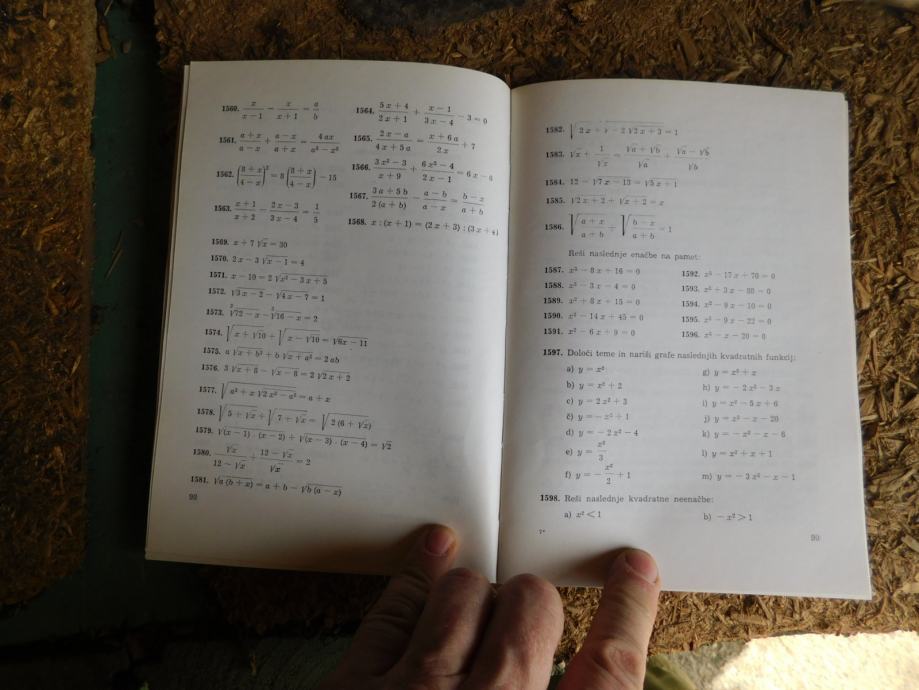 1560. x/(x − 1) − x/(x + 1) = a/b
1561. (a + x)/(a − x) + (a − x)/(a + x) = 4 ax/(a² − x²)
1562. ((8 + x)/(4 − x))² = 8 ((8 + x)/(4 − x)) − 15
1563. (x + 1)/(x + 2) − (2x − 3)/(3x − 4) = 1/5
1564. (5 x + 4)/(2 x + 1) + (x − 1)/(3 x − 4) − 3 = 0
1565. (2 x − a)/(4 x + 5 a) = (x + 6 a)/(2 x) + 7
1566. (3 x² − 3)/(x + 9) + (6 x² − 4)/(2 x − 1) = 6 x − 6
1567. (3 a + 5 b)/(2 (a + b)) − (a − b)/(a − x) = (b − x)/(a + b)
1568. x : (x + 1) = (2 x + 3) : (3 x + 4)
1569. x + 7 √x = 30
1570. 2 x − 3 √(x − 1) = 4
1571. x − 10 = 2 √(x² − 3 x + 5)
1572. √(3 x − 2) − √(4 x − 7) = 1
1573. ³√(72 − x) − ³√(16 − x) = 2
1574. √(x + √10) + √(x − √10) = √(8x − 11)
1575. a √(x + b²) + b √(x + a²) = 2 ab
1576. 3 √(x + 8) − √(x − 8) = 2 √(2 x + 2)
1577. √(a² + x √(2 x² − a²)) = a + x
1578. √(5 + √x) + √(7 + √x) = √(2 (6 + √x))
1579. √((x − 1) . (x − 2)) + √((x − 3) . (x − 4)) = √2
1580. √x/(12 − √x) + (12 − √x)/√x = 2
1581. √(a (b + x)) = a + b − √(b (a − x))
98
1582. 1
1583. √x + 1/√x = (√a + √b)/√a + (√a − √b)/√b
1584. 12 − √(7 x − 13) = √(5 x + 1)
1585. √(2 x + 2) + √(x + 2) = x
1586. √((a + x)/(a + b)) + √((b − x)/(a + b)) = 1
Reši naslednje enačbe na pamet:
1587. x² − 8 x + 16 = 0
1588. x² − 3 x − 4 = 0
1589. x² + 8 x + 15 = 0
1590. x² − 14 x + 45 = 0
1591. x² − 6 x + 9 = 0
1592. x² − 17 x + 70 = 0
1593. x² + 3 x − 88 = 0
1594. x² − 9 x − 10 = 0
1595. x² − 9 x − 22 = 0
1596. x² − x − 20 = 0
1597. Določi teme in nariši grafe naslednjih kvadratnih funkcij:
a) y = x²
b) y = x² + 2
c) y = 2 x² + 3
č) y = − x² + 1
d) y = − 2 x² − 4
e) y = x²/3
f) y = − x²/2 + 1
g) y = x² + x
h) y = − 2 x² − 3 x
i) y = x² − 5 x + 6
j) y = x² − x − 20
k) y = − x² − x − 6
l) y = x² + x + 1
m) y = − 3 x² − x − 1
1598. Reši naslednje kvadratne neenačbe:
a) x² < 1
b) − x² > 1
7*
99